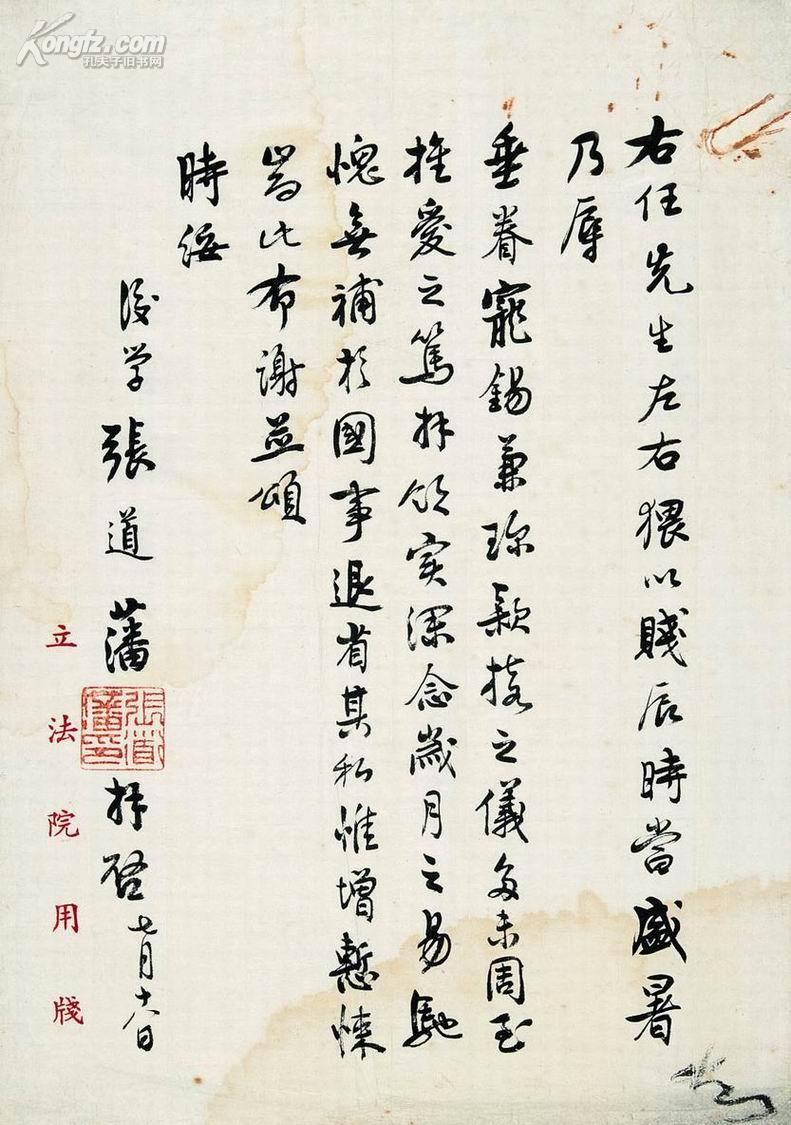 Kongfz.com
孔夫子旧书网
右任先生左右猥以賤辰時當盛暑
乃辱
垂眷寵錫兼珍款接之儀多未周至
推愛之篤拜領实深念歲月之易馳
愧無補於國事退省其私惟增慙悚
耑此布謝並頌
時綏
後学張道藩
張道藩印
拜啓七月十八日
立法院用牋